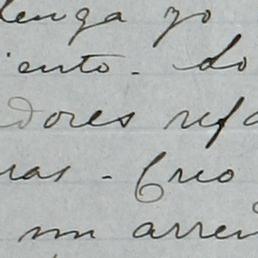 tenga yo
iento. Lo
dores refa
ras - Creo
un arren